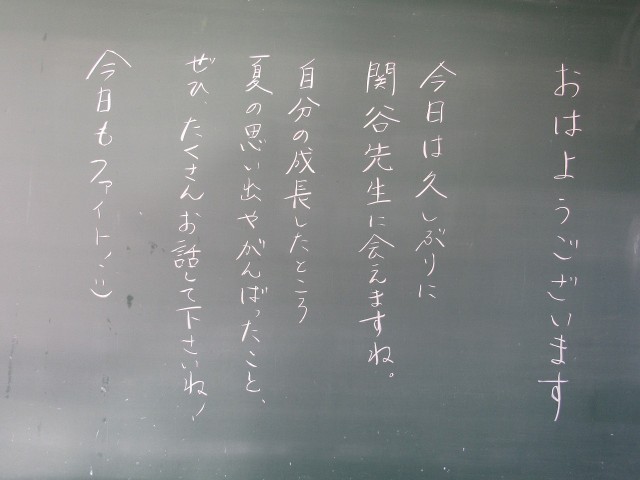 おはようございます
今日は久しぶりに
関谷先生に会えますね。
自分の成長したところ
夏の思い出やがんばったこと、
ぜひ、たくさんお話して下さいね!
今日もファイト!:)